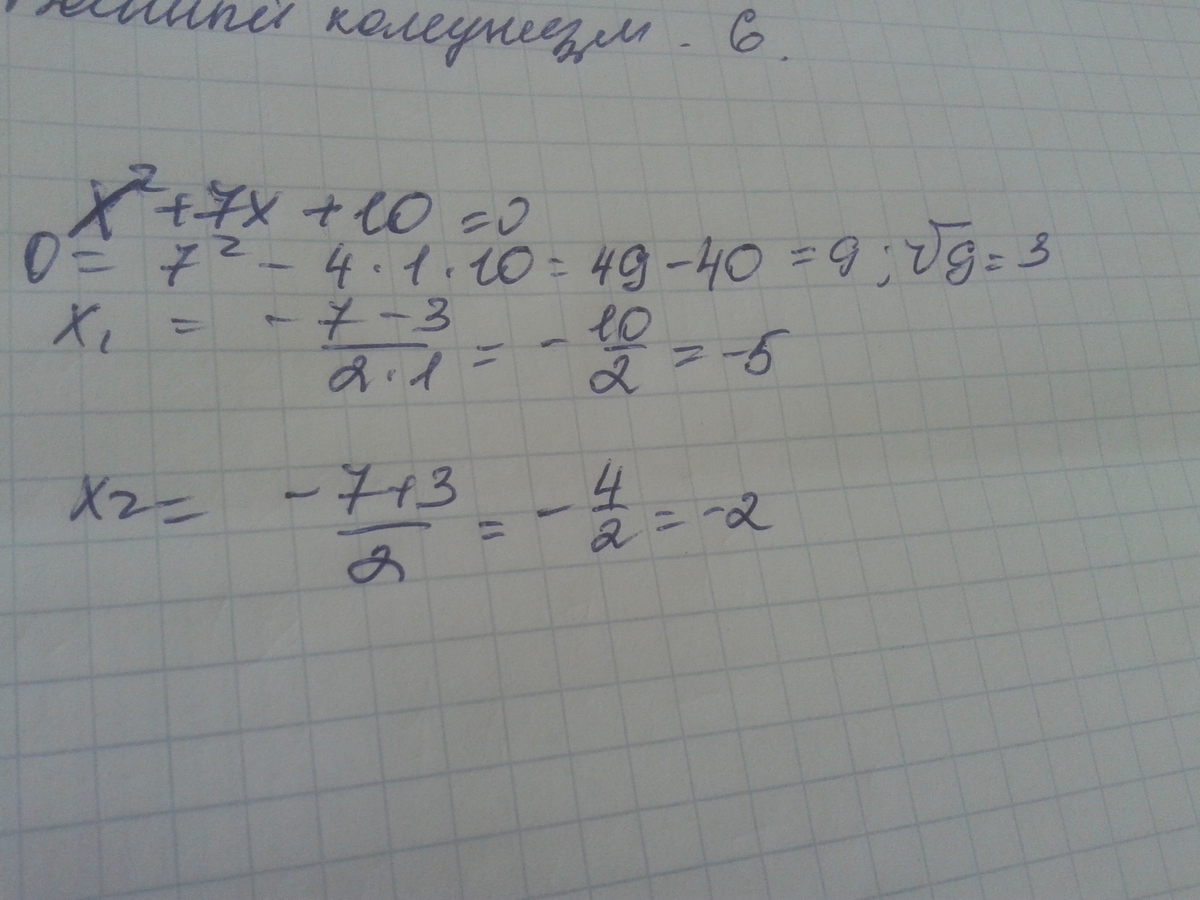 комунизм. 6.
x² + 7x + 10 = 0
D = 7² - 4 · 1 · 10 = 49 - 40 = 9 ; √9 = 3
x₁ = - 7 - 3 / 2 · 1 = - 10 / 2 = -5
x₂ = - 7 + 3 / 2 = - 4 / 2 = -2